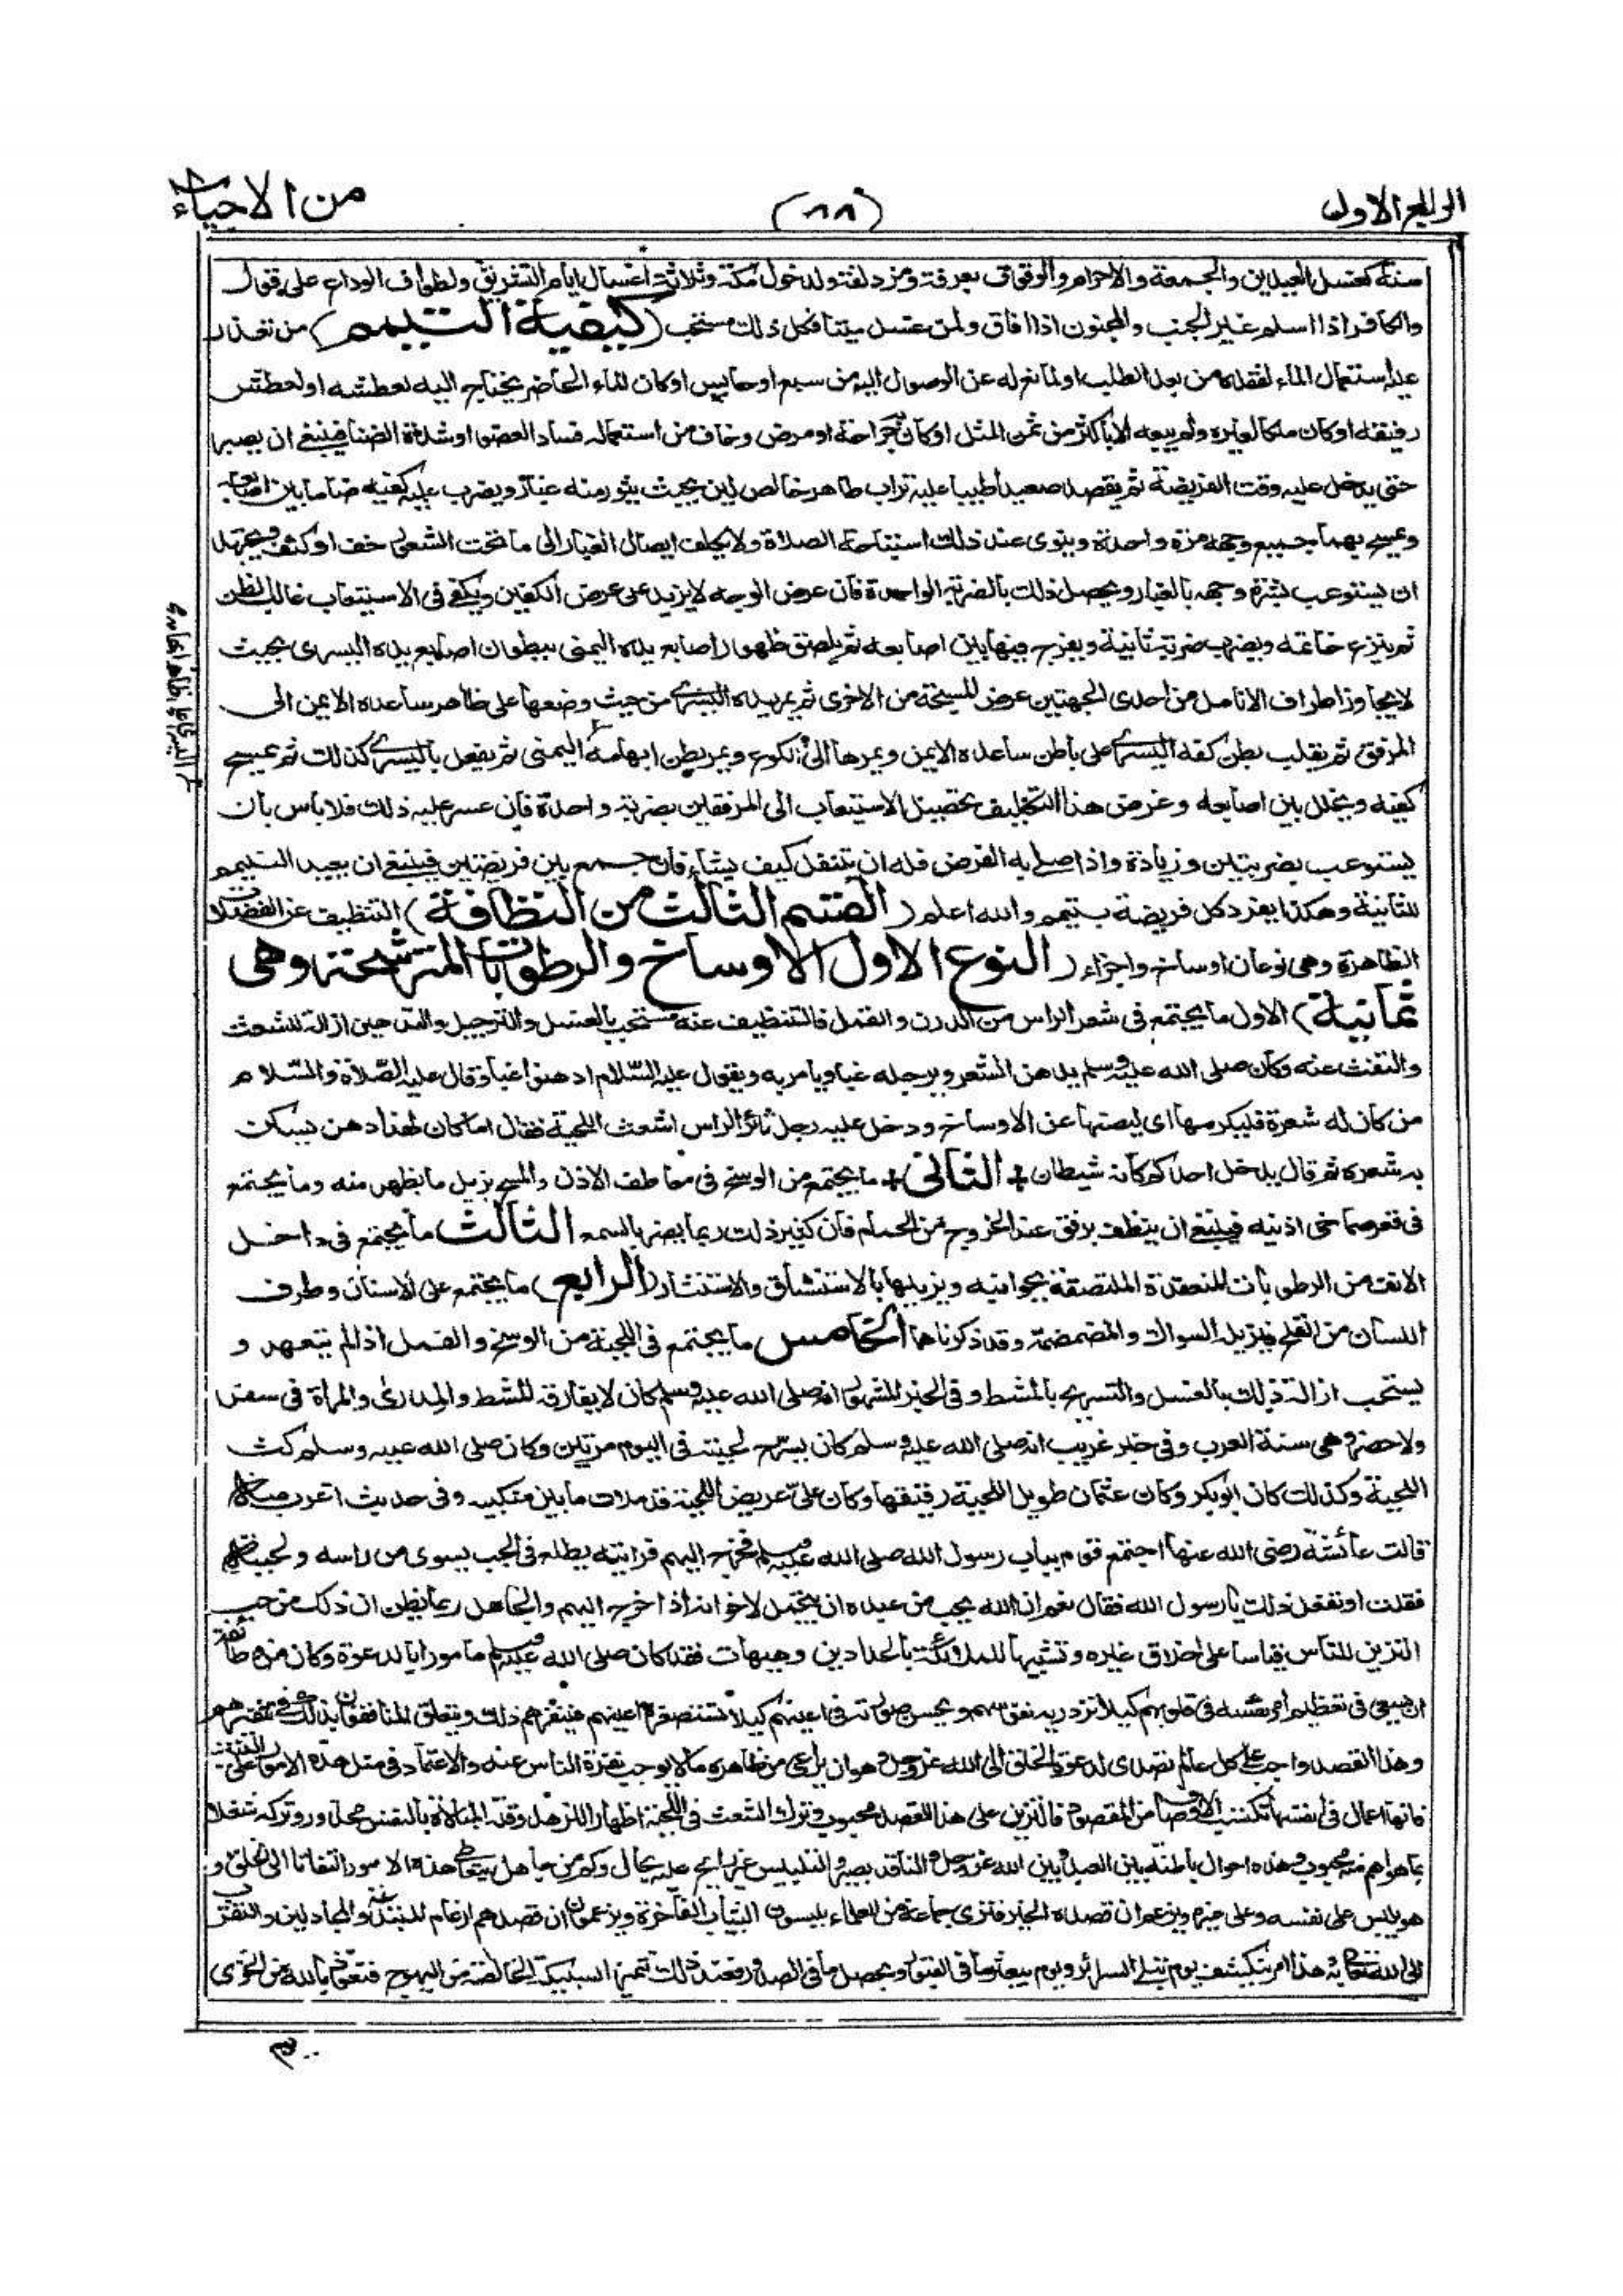 الربع الاول
(٨٨)
من الاحياء
سنة كغسل العيدين والجمعة والاحرام والوقوف بعرفة ومزدلفة ولدخول مكة وثلاثة اغسال ايام التشريق ولطواف الوداع على قول
والكافر اذا اسلم غير الجنب والمجنون اذا افاق ولمن غسل ميتا فكل ذلك مستحب (كيفية التيمم) من تعذر
عليه استعمال الماء لفقده من بعد الطلب او لمانع له عن الوصول اليه من سبع او حابس او كان الماء الحاضر يحتاج اليه لعطشه او لعطش
رفيقه او كان ملكا لغيره ولم يبعه الا باكثر من ثمن المثل او كان به جراحة او مرض وخاف من استعماله فساد العضو او شدة الضنا فينبغي ان يصبر
حتى يدخل عليه وقت الفريضة ثم يقصد صعيدا طيبا عليه تراب طاهر خالص لين بحيث يثور منه غبار ويضرب عليه كفيه ضاما بين اصابعه
ويمسح بهما جميع وجهه مرة واحدة وينوى عند ذلك استباحة الصلاة ولا يكلف ايصال الغبار الى ما تحت الشعور خف او كثف ويجتهد
ان يستوعب بشرة وجهه بالغبار ويحصل ذلك بالضربة الواحدة فان عرض الوجه لا يزيد على عرض الكفين ويكفى فى الاستيعاب غالب الظن
ثم ينزع خاتمه ويضرب ضربة ثانية ويفرج فيها بين اصابعه ثم يلصق ظهور اصابع يده اليمنى ببطون اصابع يده اليسرى بحيث
لا يجاوز اطراف الانامل من احدى الجهتين عرض المسبحة من الاخرى ثم يمر يده اليسرى من حيث وضعها على ظاهر ساعده الايمن الى
المرفق ثم يقلب بطن كفه اليسرى على باطن ساعده الايمن ويمرها الى الكوع ويمر بطن ابهامه اليمنى ثم يفعل باليسرى كذلك ثم يمسح
كفيه ويخلل بين اصابعه وغرض هذا التكليف تحصيل الاستيعاب الى المرفقين بضربة واحدة فان عسر عليه ذلك فلا باس بان
يستوعب بضربتين وزيادة واذا صلى به الفرض فله ان يتنفل كيف يشاء فان جمع بين فريضتين فينبغى ان يعيد التيمم
للثانية وهكذا يفرد كل فريضة بتيمم والله اعلم (القسم الثالث من النظافة) التنظيف عن الفضلات
الظاهرة وهى نوعان اوساخ واجزاء (النوع الاول الاوساخ والرطوبات المترشحة وهى
ثمانية) الاول ما يجتمع فى شعر الراس من الدرن والقمل فالتنظيف عنه مستحب بالغسل والترجيل والتدهين ازالة للشعث
والتفث عنه وكان صلى الله عليه وسلم يدهن الشعر ويرجله غبا ويامر به ويقول عليه السلام ادهنوا غبا وقال عليه الصلاة والسلام
من كان له شعرة فليكرمها اى ليصنها عن الاوساخ ودخل عليه رجل ثائر الراس اشعث اللحية فقال اما كان لهذا دهن يسكن
به شعره ثم قال يدخل احدكم كانه شيطان + الثانى + ما يجتمع من الوسخ فى معاطف الاذن والمسح يزيل ما يظهر منه وما يجتمع
فى قعر صماخى اذنيه فينبغى ان ينظف برفق عند الخروج من الحمام فان كثير ذلك ربما يضر بالسمع الثالث ما يجتمع فى داخل
الانف من الرطوبات المنعقدة الملتصقة بجوانبه ويزيلها بالاستنشاق والاستنثار (الرابع) ما يجتمع على الاسنان وطرف
اللسان من القلح فيزيله السواك والمضمضة وقد ذكرناهما الخامس ما يجتمع فى اللحية من الوسخ والقمل اذا لم يتعهد و
يستحب ازالة ذلك بالغسل والتسريح بالمشط وفى الخبر المشهور انه صلى الله عليه وسلم كان لا يفارقه المشط والمدرى والمرآة فى سفر
ولا حضر وهى سنة العرب وفى خبر غريب انه صلى الله عليه وسلم كان يسرح لحيته فى اليوم مرتين وكان صلى الله عليه وسلم كث
اللحية وكذلك كان ابوبكر وكان عثمان طويل اللحية رقيقها وكان على عريض اللحية قد ملات ما بين منكبيه وفى حديث اغرب منه
قالت عائشة رضى الله عنها اجتمع قوم بباب رسول الله صلى الله عليه وسلم فخرج اليهم فرايته يطلع فى الحب يسوى من راسه ولحيته
فقلت او تفعل ذلك يا رسول الله فقال نعم ان الله يحب من عبده ان يتجمل لاخوانه اذا خرج اليهم والجاهل ربما يظن ان ذلك من حب
التزين للناس قياسا على اخلاق غيره وتشبيها للملائكة بالحدادين وهيهات فقد كان صلى الله عليه وسلم مامورا بالدعوة وكان من وظائفه
ان يسعى فى تعظيم امر نفسه فى قلوبهم كيلا تزدريه نفوسهم ويحسن صورته فى اعينهم كيلا تستصغره اعينهم فينفرهم ذلك ويتعلق المنافقون بذلك فى تنفيرهم
وهذا القصد واجب على كل عالم تصدى لدعوة الخلق الى الله عز وجل وهو ان يراعى من ظاهره ما لا يوجب نفرة الناس عنه والاعتماد فى مثل هذه الامور على النية
فانها اعمال فى انفسها تكتسب الاوصاف من المقصود فالتزين على هذا القصد محبوب وترك الشعث فى اللحية اظهارا للزهد وقلة المبالاة بالنفس محذور وتركه شغلا
بما هو اهم منه محبوب وهذه احوال باطنة بين العبد وبين الله عز وجل والناقد بصير والتلبيس غير رايج عليه بحال وكم من جاهل يتعاطى هذه الامور التفاتا الى الخلق و
هو يلبس على نفسه وعلى غيره ويزعم ان قصده الخير فترى جماعة من العلماء يلبسون الثياب الفاخرة ويزعمون ان قصدهم ارغام المبتدعة والمجادلين والتقرب
الى الله تعالى به هذا امر ينكشف يوم تبلى السرائر ويوم يبعثر ما فى القبور ويحصل ما فى الصدور فعند ذلك تتميز السبيكة الخالصة من البهرج فنعوذ بالله من الخزى